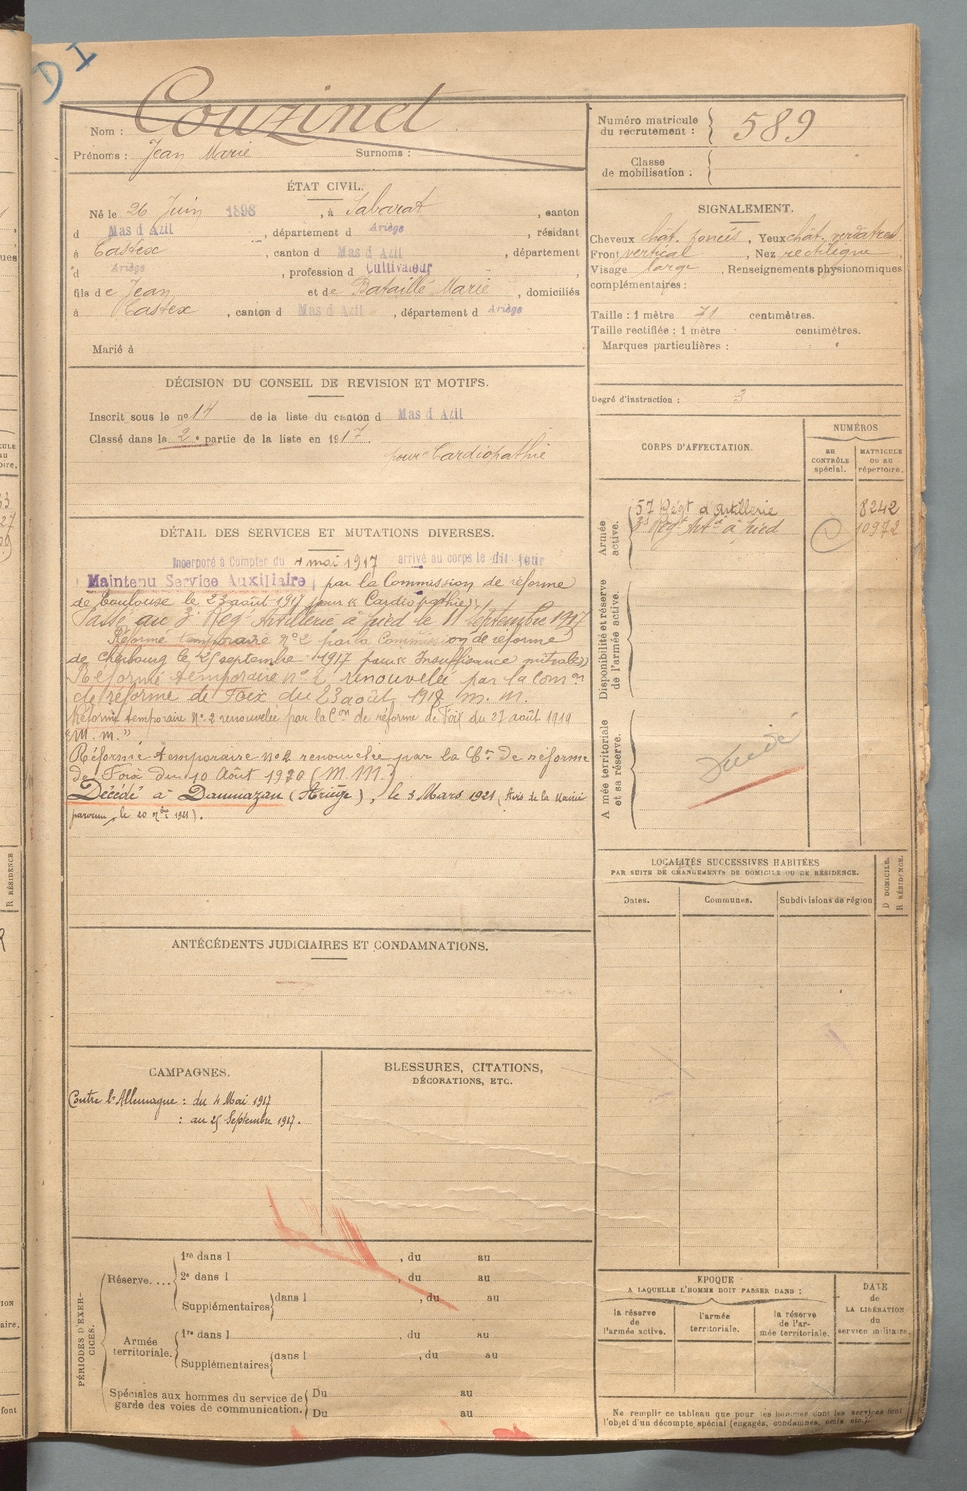 DI
Nom : Couzinet
Prénoms : Jean Marie Surnoms :
Numéro matricule du recrutement : 589
Classe de mobilisation :
ÉTAT CIVIL.
Né le 26 Juin 1898, à Sabarat, canton
d Mas d Azil, département d Ariège, résidant
à Castex, canton d Mas d Azil, département
d Ariège, profession d Cultivateur
fils de Jean et de Bataillé Marie, domiciliés
à Castex, canton d Mas d Azil, département d Ariège
Marié à
SIGNALEMENT.
Cheveux chat. foncés, Yeux chât. verdâtres
Front vertical, Nez rectiligne
Visage large, Renseignements physionomiques
complémentaires :
Taille : 1 mètre 71 centimètres.
Taille rectifiée : 1 mètre centimètres.
Marques particulières :
Degré d'instruction : 3
DÉCISION DU CONSEIL DE REVISION ET MOTIFS.
Inscrit sous le no 14 de la liste du canton d Mas d Azil
Classé dans la 2e partie de la liste en 1917
pour Cardiopathie
CORPS D'AFFECTATION.
NUMÉROS
AU CONTRÔLE spécial.
MATRICULE OU AU répertoire.
Armée active.
57 Régt d'Artillerie 8242
3e Régt Arte à pied 10972
Disponibilité et réserve de l'armée active.
A mée territoriale et sa réserve.
DÉTAIL DES SERVICES ET MUTATIONS DIVERSES.
Incorporé à Compter du 4 mai 1917 arrivé au corps le dit jour
Maintenu Service Auxiliaire, par la Commission de réforme
de Toulouse le 23 août 1917 pour « Cardiopathie »
Passé au 3e Reg Artillerie à pied le 11 septembre 1917
Réformé temporaire No 2 par la Commission de réforme
de Cherbourg le 25 septembre 1917 pour « Insuffisance mitrale »
Réformé temporaire no 2 renouvelée par la Comon
de réforme de Foix du 23 août 1918 m. m.
Réformé temporaire No 2 renouvelée par la Con de réforme de Foix du 27 août 1919
"M. m."
Réforme temporaire no 2 renouvelée par la Con de réforme
de Foix du 10 Août 1920 (M.M.)
Décédé à Daumazan (Ariège), le 3 Mars 1921 (Avis de la Mairie
parvenu le 20 1921).
LOCALITÉS SUCCESSIVES HABITÉES
PAR SUITE DE CHANGEMENTS DE DOMICILE OU DE RÉSIDENCE.
Dates. Communes. Subdivisions de région
D DOMICILE.
R RÉSIDENCE.
ANTÉCÉDENTS JUDICIAIRES ET CONDAMNATIONS.
CAMPAGNES.
Contre l'Allemagne : du 4 Mai 1917
: au 25 Septembre 1917.
BLESSURES, CITATIONS,
DÉCORATIONS, ETC.
PÉRIODES D'EXERCICES.
Réserve....
1re dans l , du au
2e dans l , du au
Supplémentaires dans l , du au
Armée territoriale.
1re dans l , du au
Supplémentaires dans l , du au
Spéciales aux hommes du service de Du au
garde des voies de communication. Du au
EPOQUE
A LAQUELLE L'HOMME DOIT PASSER DANS :
la réserve de l'armée active.
l'armée territoriale.
la réserve de l'armée territoriale.
DATE de LA LIBÉRATION du service militaire.
Ne remplir ce tableau que pour les hommes dont les services font
l'objet d'un décompte spécial (engagés, condamnés, omis etc.).